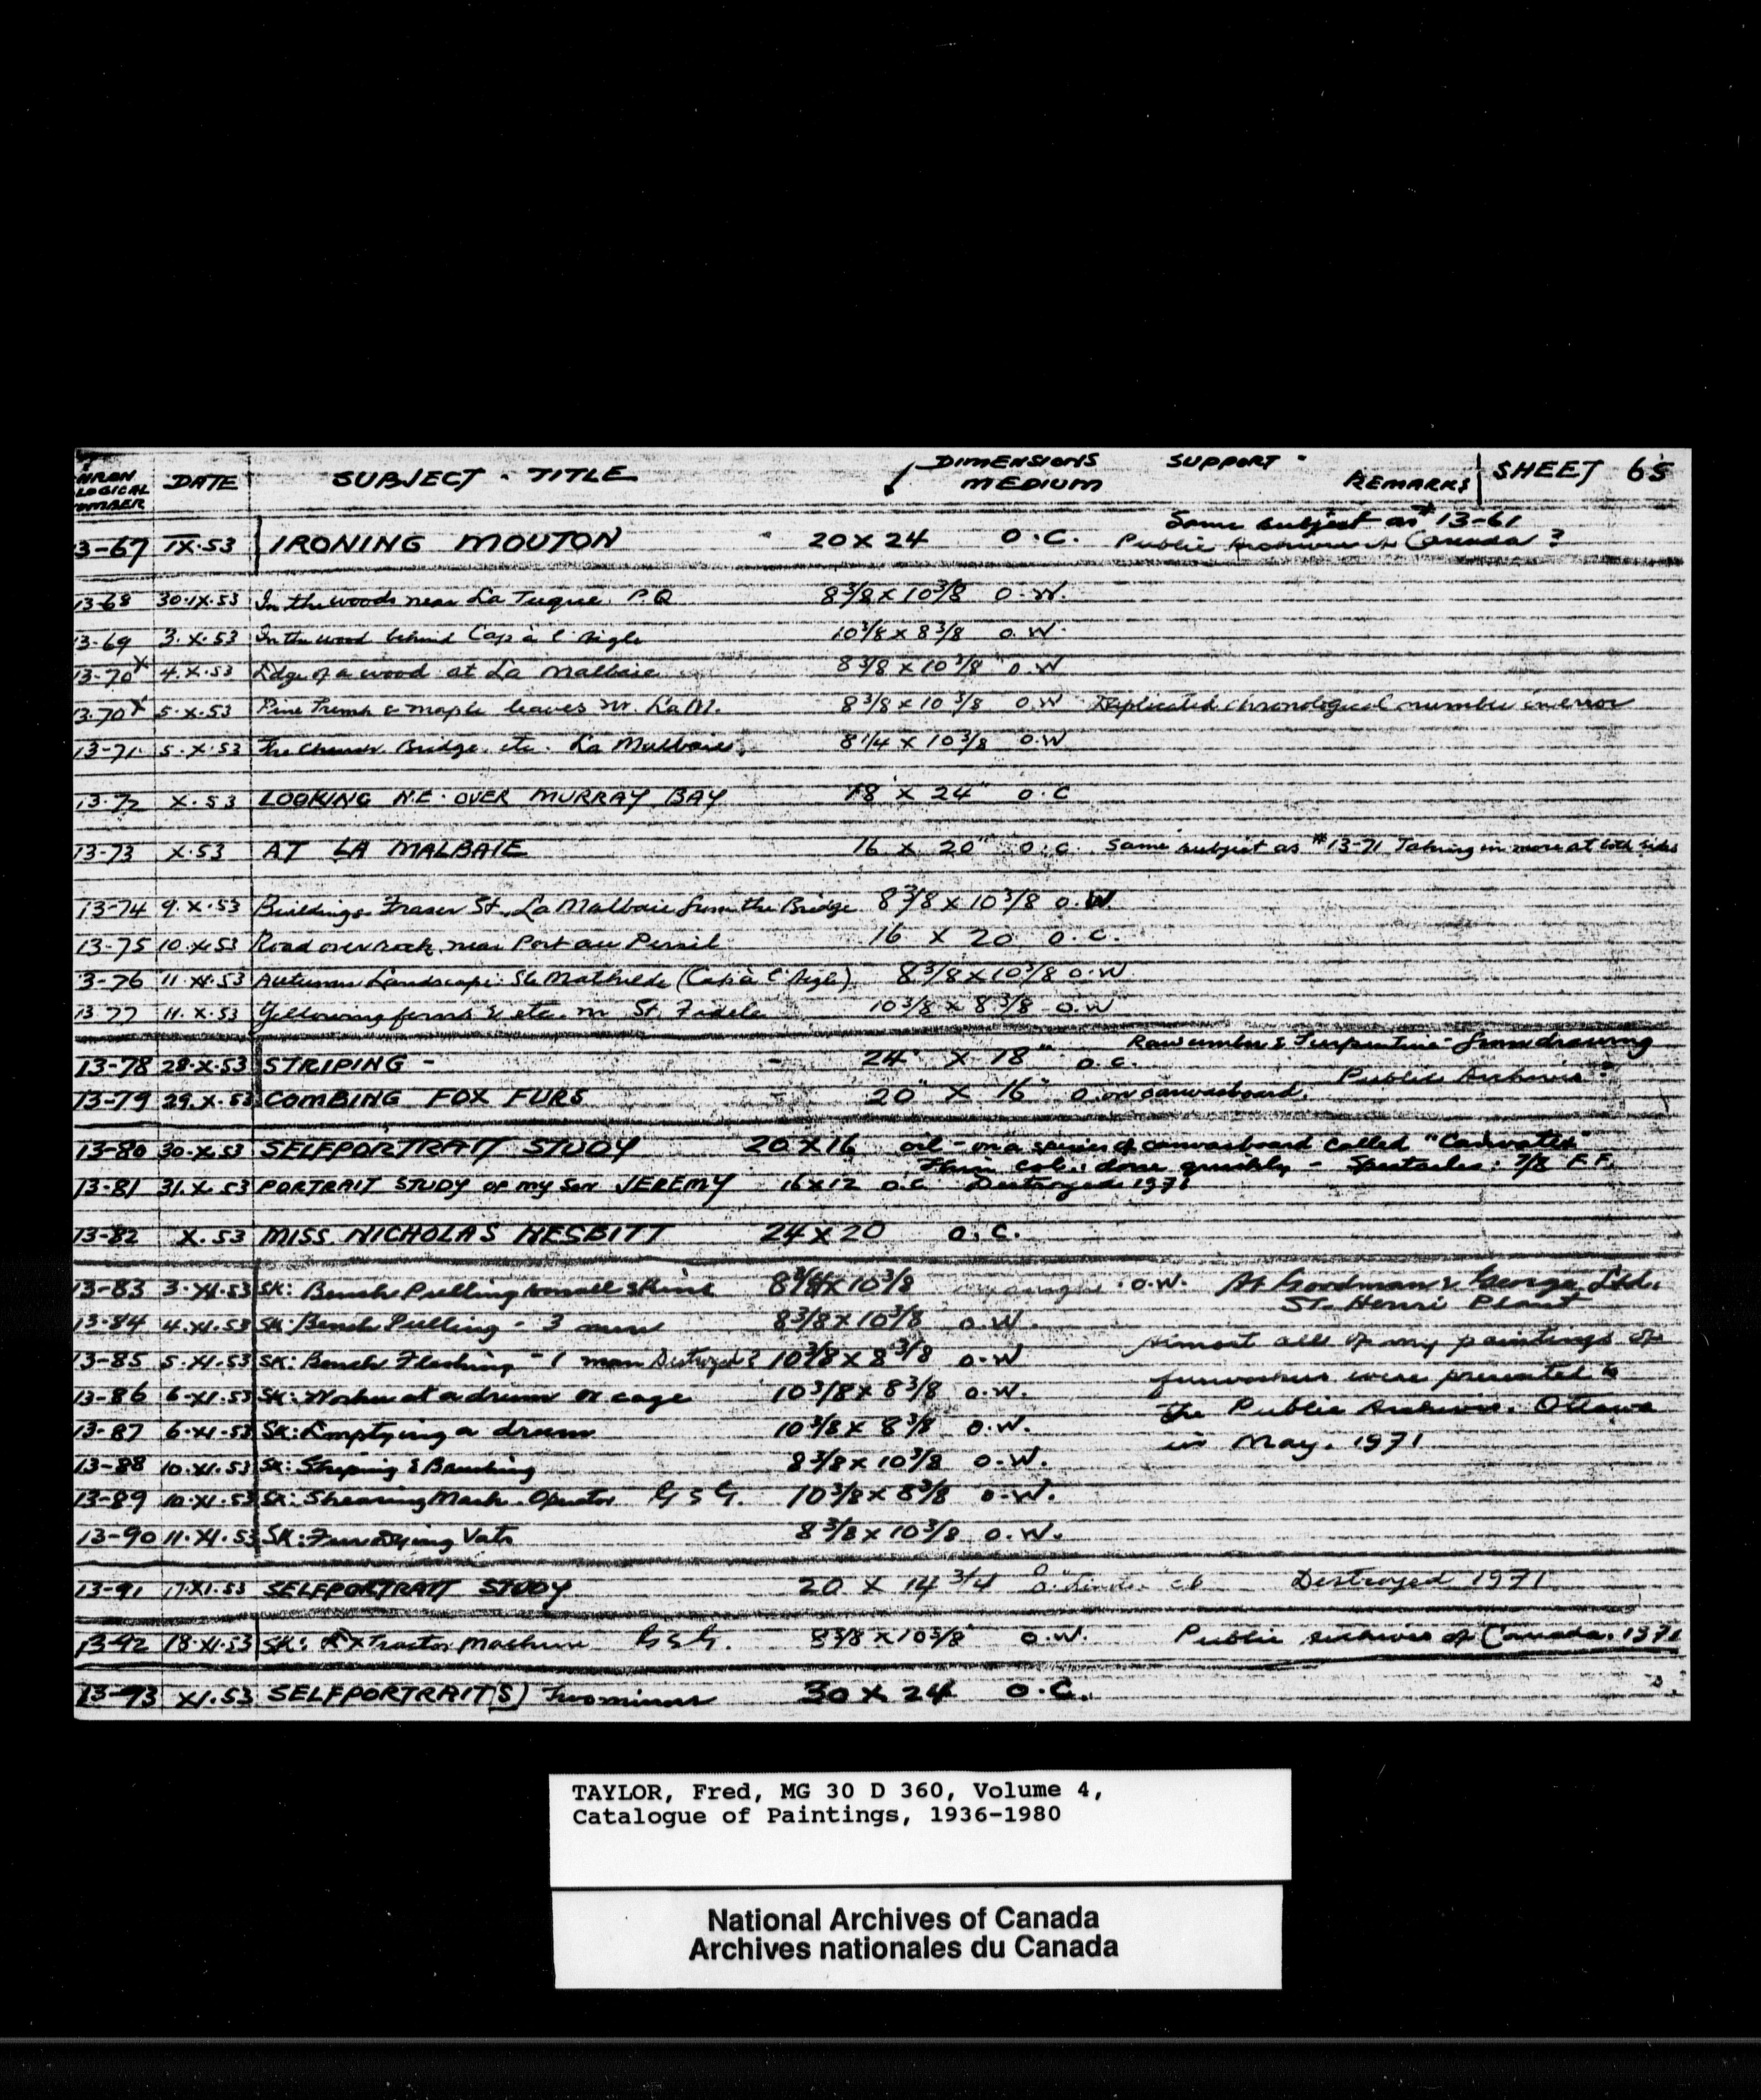 CHRON LOGICAL NUMBER DATE SUBJECT - TITLE DIMENSIONS MEDIUM SUPPORT - REMARKS SHEET 65
Same subject as # 13-61
13-67 IX.53 IRONING MOUTON 20 X 24 O.C. Public Archives of Canada?
13-68 30.IX.53 In the woods near La Tuque. P.Q. 8 3/8 x 10 3/8 O.W.
13-69 3.X.53 In the wood behind Cap à l'Aigle 10 3/8 x 8 3/8 O.W.
13-70 X 4.X.53 Edge of a wood at La Malbaie 8 3/8 x 10 3/8 O.W
13-70 X 5.X.53 Pine Trunk & maple leaves nr. La M. 8 3/8 x 10 3/8 O.W Duplicated chronological number in error
13-71 5.X.53 The Church Bridge etc. La Malbaie. 8 1/4 X 10 3/8 O.W
13-72 X.53 LOOKING N.E. OVER MURRAY BAY 18 X 24" O.C
13-73 X.53 AT LA MALBAIE 16 X 20" O.C. Same subject as # 13-71 Taking in more at both sides
13-74 9.X.53 Buildings Fraser St. La Malbaie from the Bridge 8 3/8 X 10 3/8 O.W.
13-75 10.X.53 Road over rock, near Port au Persil 16 X 20 O.C.
13-76 11.X.53 Autumn Landscape: Ste Mathilde (Cap à l'Aigle) 8 3/8 X 10 3/8 O.W
13-77 11.X.53 Yellowing ferns & etc. nr St. Fidele 10 3/8 x 8 3/8 O.W
Raw umber & Turpentine from drawing
13-78 28.X.53 STRIPING - - 24" X 18" O.C.
Public Archives?
13-79 29.X.53 COMBING FOX FURS - 20" X 16" O. on canvasboard.
13-80 30.X.53 SELFPORTRAIT STUDY 20 X 16 oil - on a series of canvasboard called "Canvatex"
done quickly - Spectacles: 7/8 F.F.
13-81 31.X.53 PORTRAIT STUDY OF MY SON JEREMY 16 X 12 O.C. Destroyed 1971
13-82 X.53 MISS NICHOLAS NESBITT 24 X 20 O.C.
13-83 3.XI.53 SK: Bench Pulling small skins 8 3/8 X 10 3/8 O.W. At Goodman & George Ltd.
St. Henri Plant
13-84 4.XI.53 SK: Bench Pulling - 3 men 8 3/8 X 10 3/8 O.W.
Almost all of my paintings of
13-85 5.XI.53 SK: Bench Fleshing - 1 man Destroyed? 10 3/8 X 8 3/8 O.W
furworkers were presented to
13-86 6.XI.53 SK: Worker at a drum or cage 10 3/8 X 8 3/8 O.W.
the Public Archives. Ottawa
13-87 6.XI.53 SK: Emptying a drum 10 3/8 X 8 3/8 O.W.
in May. 1971
13-88 10.XI.53 SK: Striping & Brushing 8 3/8 X 10 3/8 O.W.
13-89 10.XI.53 SK: Shearing Mach. Operator G & G. 10 3/8 X 8 3/8 O.W.
13-90 11.XI.53 SK: Fur Dying Vats 8 3/8 X 10 3/8 O.W.
13-91 17.XI.53 SELFPORTRAIT STUDY 20 X 14 3/4 Destroyed 1971
13-92 18.XI.53 SK: Extractor Machine G & G. 8 3/8 X 10 3/8 O.W. Public Archives of Canada. 1971
13-93 XI.53 SELFPORTRAIT(S) Two mirrors 30 X 24 O.C.
TAYLOR, Fred, MG 30 D 360, Volume 4,
Catalogue of Paintings, 1936-1980
National Archives of Canada
Archives nationales du Canada